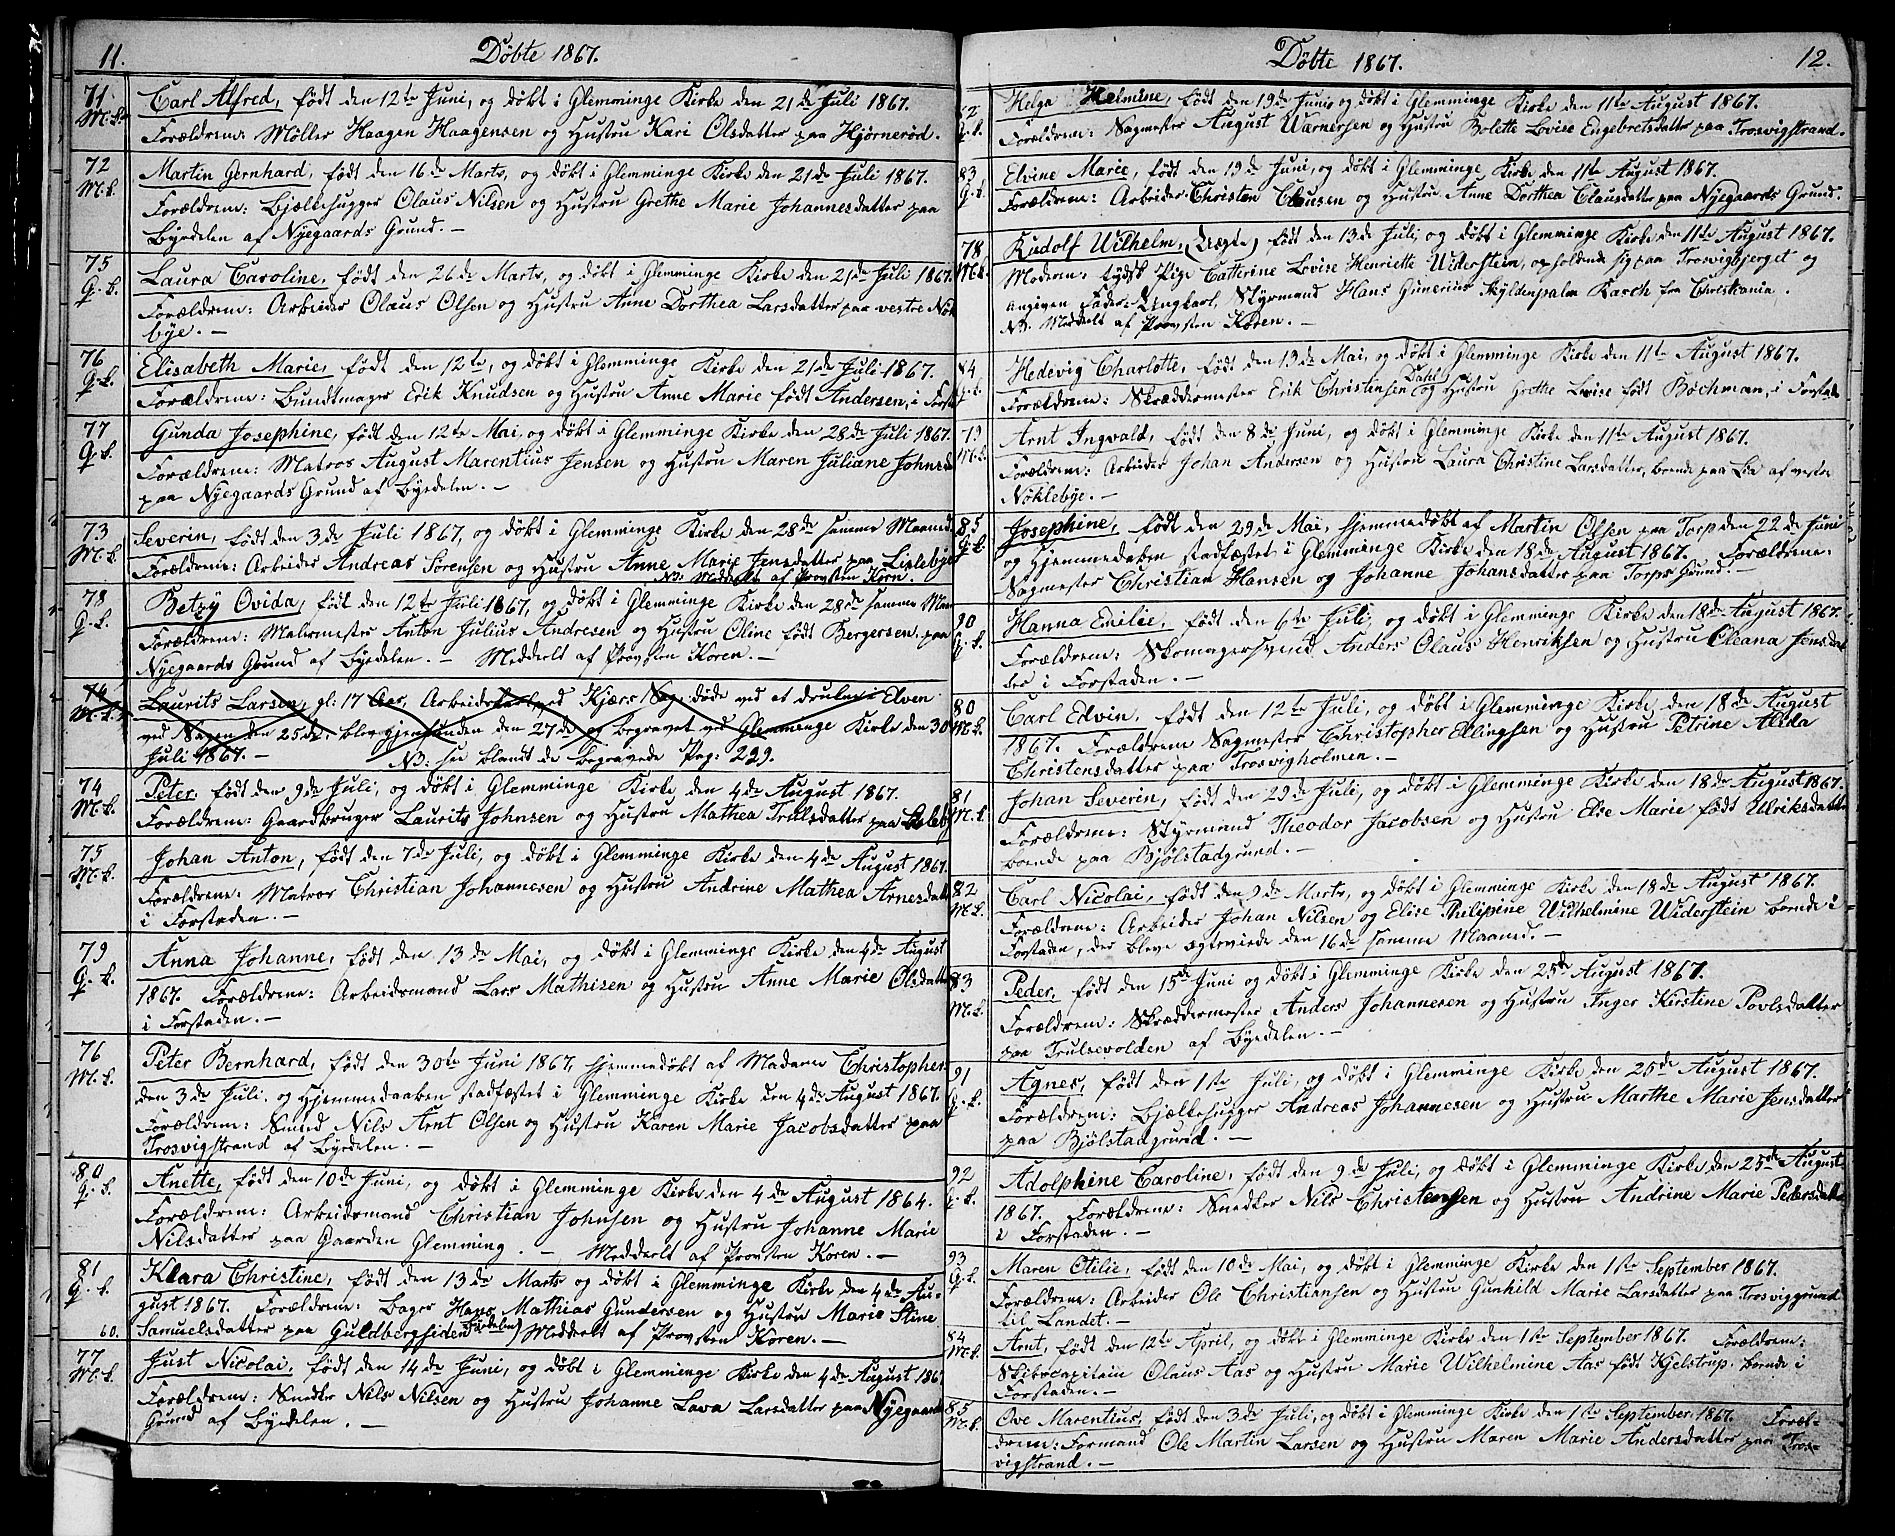 11.
Döbte 1867.
71
M.k.
Carl Alfred, födt den 12te Juni, og döbt i Glemminge Kirke den 21de Juli 1867.
Forældrene: Møller Haagen Haagensen og Hustru Kari Olsdatter paa Hjørneröd.
72
M.k.
Martin Gernhard, födt den 16de Marts, og döbt i Glemminge Kirke den 21de Juli 1867.
Forældrene: Bjælkehugger Olaus Nilsen og Hustru Grethe Marie Johannesdatter paa
Byedelen af Nyegaards Grund. —
75
Q.k.
Laura Caroline, födt den 26de Marts, og döbt i Glemminge Kirke den 21de Juli 1867.
Forældrene: Arbeider Olaus Olsen og Hustru Anne Dorthea Larsdatter paa vestre Nök
bye. —
76
Q.k.
Elisabeth Marie, födt den 12te, og döbt i Glemminge Kirke den 21de Juli 1867.
Forældrene: Bundtmager Erik Knudsen og Hustru Anne Marie födt Andersen, i Forst
77
Q.k.
Gunda Josephine, födt den 12te Mai, og döbt i Glemminge Kirke den 28de Juli 1867.
Forældrene: Matros August Marentius Jensen og Hustru Maren Juliane Johnsd
paa Nyegaards Grund af Byedelen. —
73
M.k.
Severin, födt den 3de Juli 1867, og döbt i Glemminge Kirke den 28de samme Maaned.
Forældrene: Arbeider Andreas Sörensen og Hustru Anne Marie Jensdatter paa Lislebye
NB: Meddelt af Provsten Korn.
78
Q.k.
Betzy Ovida, födt den 12te Juli 1867, og döbt i Glemminge Kirke den 28de samme Maa
Forældrene: Malermester Anton Julius Andresen og Hustru Oline födt Bergersen, paa
Nyegaards Grund af Byedelen. — Meddelt af Provsten Koren. —
74
M.k.
Laurits Larsen, gl: 17 Aar, Arbeidskarl ved Kjærs Sag, døde ved at drukne i Elven
ved Sagen den 25de, blev gjenfunden den 27de og begravet ved Glemminge Kirke den 30
Juli 1867. — NB: see blandt de begravede Pag: 229.
74
M.k.
Peter, födt den 9de Juli, og döbt i Glemminge Kirke den 4de August 1867.
Forældrene: Gaardbruger Laurits Johnsen og Hustru Mathea Trulsdatter paa Lisleby
75
M.k.
Johan Anton, födt den 7de Juli, og döbt i Glemminge Kirke den 4de August 1867.
Forældrene: Matros Christian Johannesen og Hustru Andrine Mathea Arnesdatt
i Forstaden. —
79
Q.k.
Anna Johanne, födt den 13de Mai, og döbt i Glemminge Kirke den 4de August
1867. Forældrene: Arbeidsmand Lars Mathisen og Hustru Anne Marie Olsdatt
i Forstaden. —
76
M.k.
Peter Bernhard, födt den 30te Juni 1867, hjemmedöbt af Madame Christophers
den 3de Juli, og Hjemmedaaben stadfæstet i Glemminge Kirke den 4de August 1867.
Forældrene: Smed Nils Arnt Olsen og Hustru Karen Marie Jacobsdatter paa
Trosvigstrand af Byedelen. —
80
Q.k.
Anette, födt den 10de Juni, og döbt i Glemminge Kirke den 4de August 1864.
Forældrene: Arbeidsmand Christian Johnsen og Hustru Johanne Marie
Nilsdatter paa Gaarden Glemming. — Meddelt af Provsten Koren. —
81
Q.k.
Klara Christine, födt den 13de Marts og döbt i Glemminge Kirke den 4de Au-
gust 1867. Forældrene: Bager Hans Mathias Gundersen og Hustru Marie Stine
60.
Samuelsdatter paa Guldbergsiden (Byedelen) Meddelt af Provsten Koren. —
77
M.k.
Just Nicolai, födt den 14de Juni, og döbt i Glemminge Kirke den 4de August 186
Forældrene: Snedker Nils Nilsen og Hustru Johanne Lava Larsdatter paa Nyegaards
Grund af Byedelen. —
Döbte 1867.
12.
82
Q.k.
Helga Helmine, födt den 19de Juni og döbt i Glemminge Kirke den 11te August 1867.
Forældrene: Sagmester August Warnersen og Hustru Bolette Lovise Engebretsdatter paa Trosvigstrand.
83
Q.k.
Elvine Marie, födt den 19de Juni, og döbt i Glemminge Kirke den 11te August 1867.
Forældrene: Arbeider Christen Clausen og Hustru Anne Dorthea Clausdatter paa Nyegaards Grund.
78
M.k.
Rudolf Wilhelm, (Uægte) födt den 13de Juli, og döbt i Glemminge Kirke den 11te August 1867.
Moderen: tydsk Pige Catterine Lovise Henriette Widerstein, opholdende sig paa Trosvigbjerget og
angiven Fader: Ungkarl, Styrmand Hans Gunerius Kasch fra Christiania.
NB: Meddelt af Provsten Koren. —
84
Q.k.
Hedevig Charlotte, födt den 13de Mai, og döbt i Glemminge Kirke den 11te August 1867.
Forældrene: Skræddermester Erik Christensen Dahl og Hustru Grethe Lovise födt Bochman, i Forstade
79
M.k.
Arnt Ingvald, födt den 8de Juni, og döbt i Glemminge Kirke den 11te August 1867.
Forældrene: Arbeider Johan Andersen og Hustru Laura Christine Larsdatter, boende paa Lia af vestre
Nöklebye. —
85
Q.k.
Josephine, födt den 29de Mai, hjemmedöbt af Martin Olsen paa Torp den 22de Juni
og Hjemmedaaben stadfæstet i Glemminge Kirke den 18de August 1867. Forældrene:
Sagmester Christian Hansen og Johanne Johansdatter paa Torps Grund. —
90
Q.k.
Hanna Emilie, födt den 6te Juli, og döbt i Glemminge Kirke den 18de August 1867.
Forældrene: Skomagersvend Anders Olaus Henriksen og Hustru Oleana Jensdat
ter i Forstaden. —
80
M.k.
Carl Edvin, födt den 12te Juli, og döbt i Glemminge Kirke den 18de August
1867. Forældrene Sagmester Christopher Ellingsen og Hustru Petrine Alida
Christensdatter paa Trosvigholmen. —
81
M.k.
Johan Severin, födt den 29de Juli, og döbt i Glemminge Kirke den 18de August 1867.
Forældrene: Styrmand Theodor Jacobsen og Hustru Else Marie födt Ulriksdatte
boende paa Bjölstadgrund. —
82
M.k.
Carl Nicolai, födt den 9de Marts, og döbt i Glemminge Kirke den 18de August 1867.
Forældrene: Arbeider Johan Nilsen og Elise Philipine Wilhelmine Widerstein boende i
Forstaden, der bleve ægteviede den 16de samme Maaned. —
83
M.k.
Peder, födt den 15de Juni og döbt i Glemminge Kirke den 25de August 1867.
Forældrene: Skræddermester Anders Johannesen og Hustru Inger Kirstine Povlsdatter
paa Trulsevolden af Byedelen. —
91
Q.k.
Agnes, födt den 1ste Juli, og döbt i Glemminge Kirke den 25de August 1867.
Forældrene: Bjælkehugger Andreas Johannesen og Hustru Marthe Marie Jensdatter
paa Bjölstadgrund. —
92
Q.k.
Adolphine Caroline, födt den 9de Juli, og döbt i Glemminge Kirke den 25de August
1867. Forældrene: Snedker Nils Christensen og Hustru Andrine Marie Pedersdatte
i Forstaden. —
93
Q.k.
Maren Otilie, födt den 10de Mai, og döbt i Glemminge Kirke den 1ste September 1867.
Forældrene: Arbeider Ole Christiansen og Hustru Gunhild Marie Larsdatter paa Trosviggrund
til Landet. —
84
M.k.
Arnt, födt den 12te April, og döbt i Glemminge Kirke den 1ste September 1867. Forældrene:
Skibscapitain Olaus Aas og Hustru Marie Wilhelmine Aas födt Kjelstrup, boende i
Forstaden. —
85
M.k.
Ove Marentius, födt den 3de Juli, og döbt i Glemminge Kirke den 1ste September 1867. Foræl-
drene: Formand Ole Martin Larsen og Hustru Maren Marie Andersdatter paa Tros-
vigstrand. —